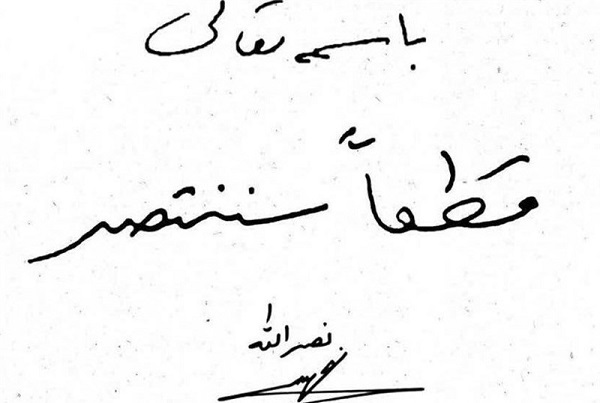 باسمه تعالى
قطعاً سننتصر
نصر الله